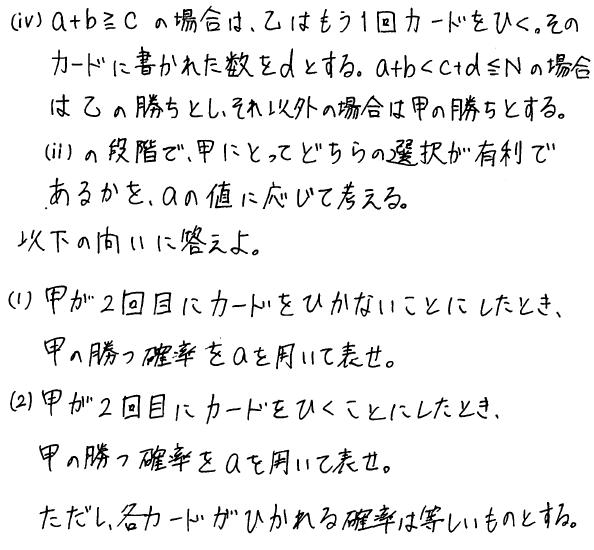 (iv) a+b≧c の場合は、乙はもう1回カードをひく。その
カードに書かれた数をdとする。a+b<c+d≦Nの場合
は乙の勝ちとし、それ以外の場合は甲の勝ちとする。
(ii) の段階で、甲にとってどちらの選択が有利で
あるかを、aの値に応じて考える。
以下の問いに答えよ。
(1) 甲が2回目にカードをひかないことにしたとき、
甲の勝つ確率をaを用いて表せ。
(2) 甲が2回目にカードをひくことにしたとき、
甲の勝つ確率をaを用いて表せ。
ただし、各カードがひかれる確率は等しいものとする。